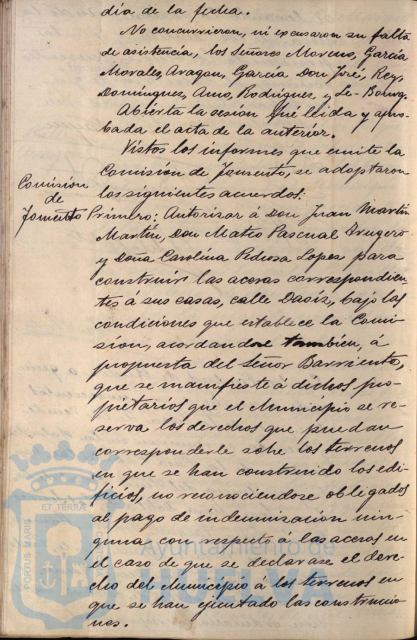 día de la fecha.
No concurrieron, ni excusaron su falta
de asistencia, los Señores Moreno, García
Morales, Aragon, García Don José, Rey,
Domínguez, Amo, Rodriguez y Le-Bourg.
Abierta la sesión fué leida y apro-
bada el acta de la anterior.
Vistos los informes que emite la
Comisión de Fomento, se adoptaron
los siguientes acuerdos:
Comisión
de
Fomento
Primero: Autorizar á Don Juan Martín
Martín, Don Mateo Pascual
y Doña Carolina Pedrosa Lopez para
construir las aceras correspondien-
tes á sus casas, calle Daoiz, bajo las
condiciones que establece la Comi-
sión, acordandose tambien, á
propuesta del Señor Barriento,
que se manifieste á dichos pro-
pietarios que el Municipio se re-
serva los derechos que puedan
corresponderle sobre los terrenos
en que se han construido los edi-
ficios, no reconociendose obligados
al pago de indemnización nin-
guna con respecto á las aceras en
el caso de que se declarase el dere-
cho del Municipio á los terrenos en
que se han ejecutado las construccio-
nes.
PORTUS MARIS
ET TERRÆ
Ayuntamiento de
HUELVA